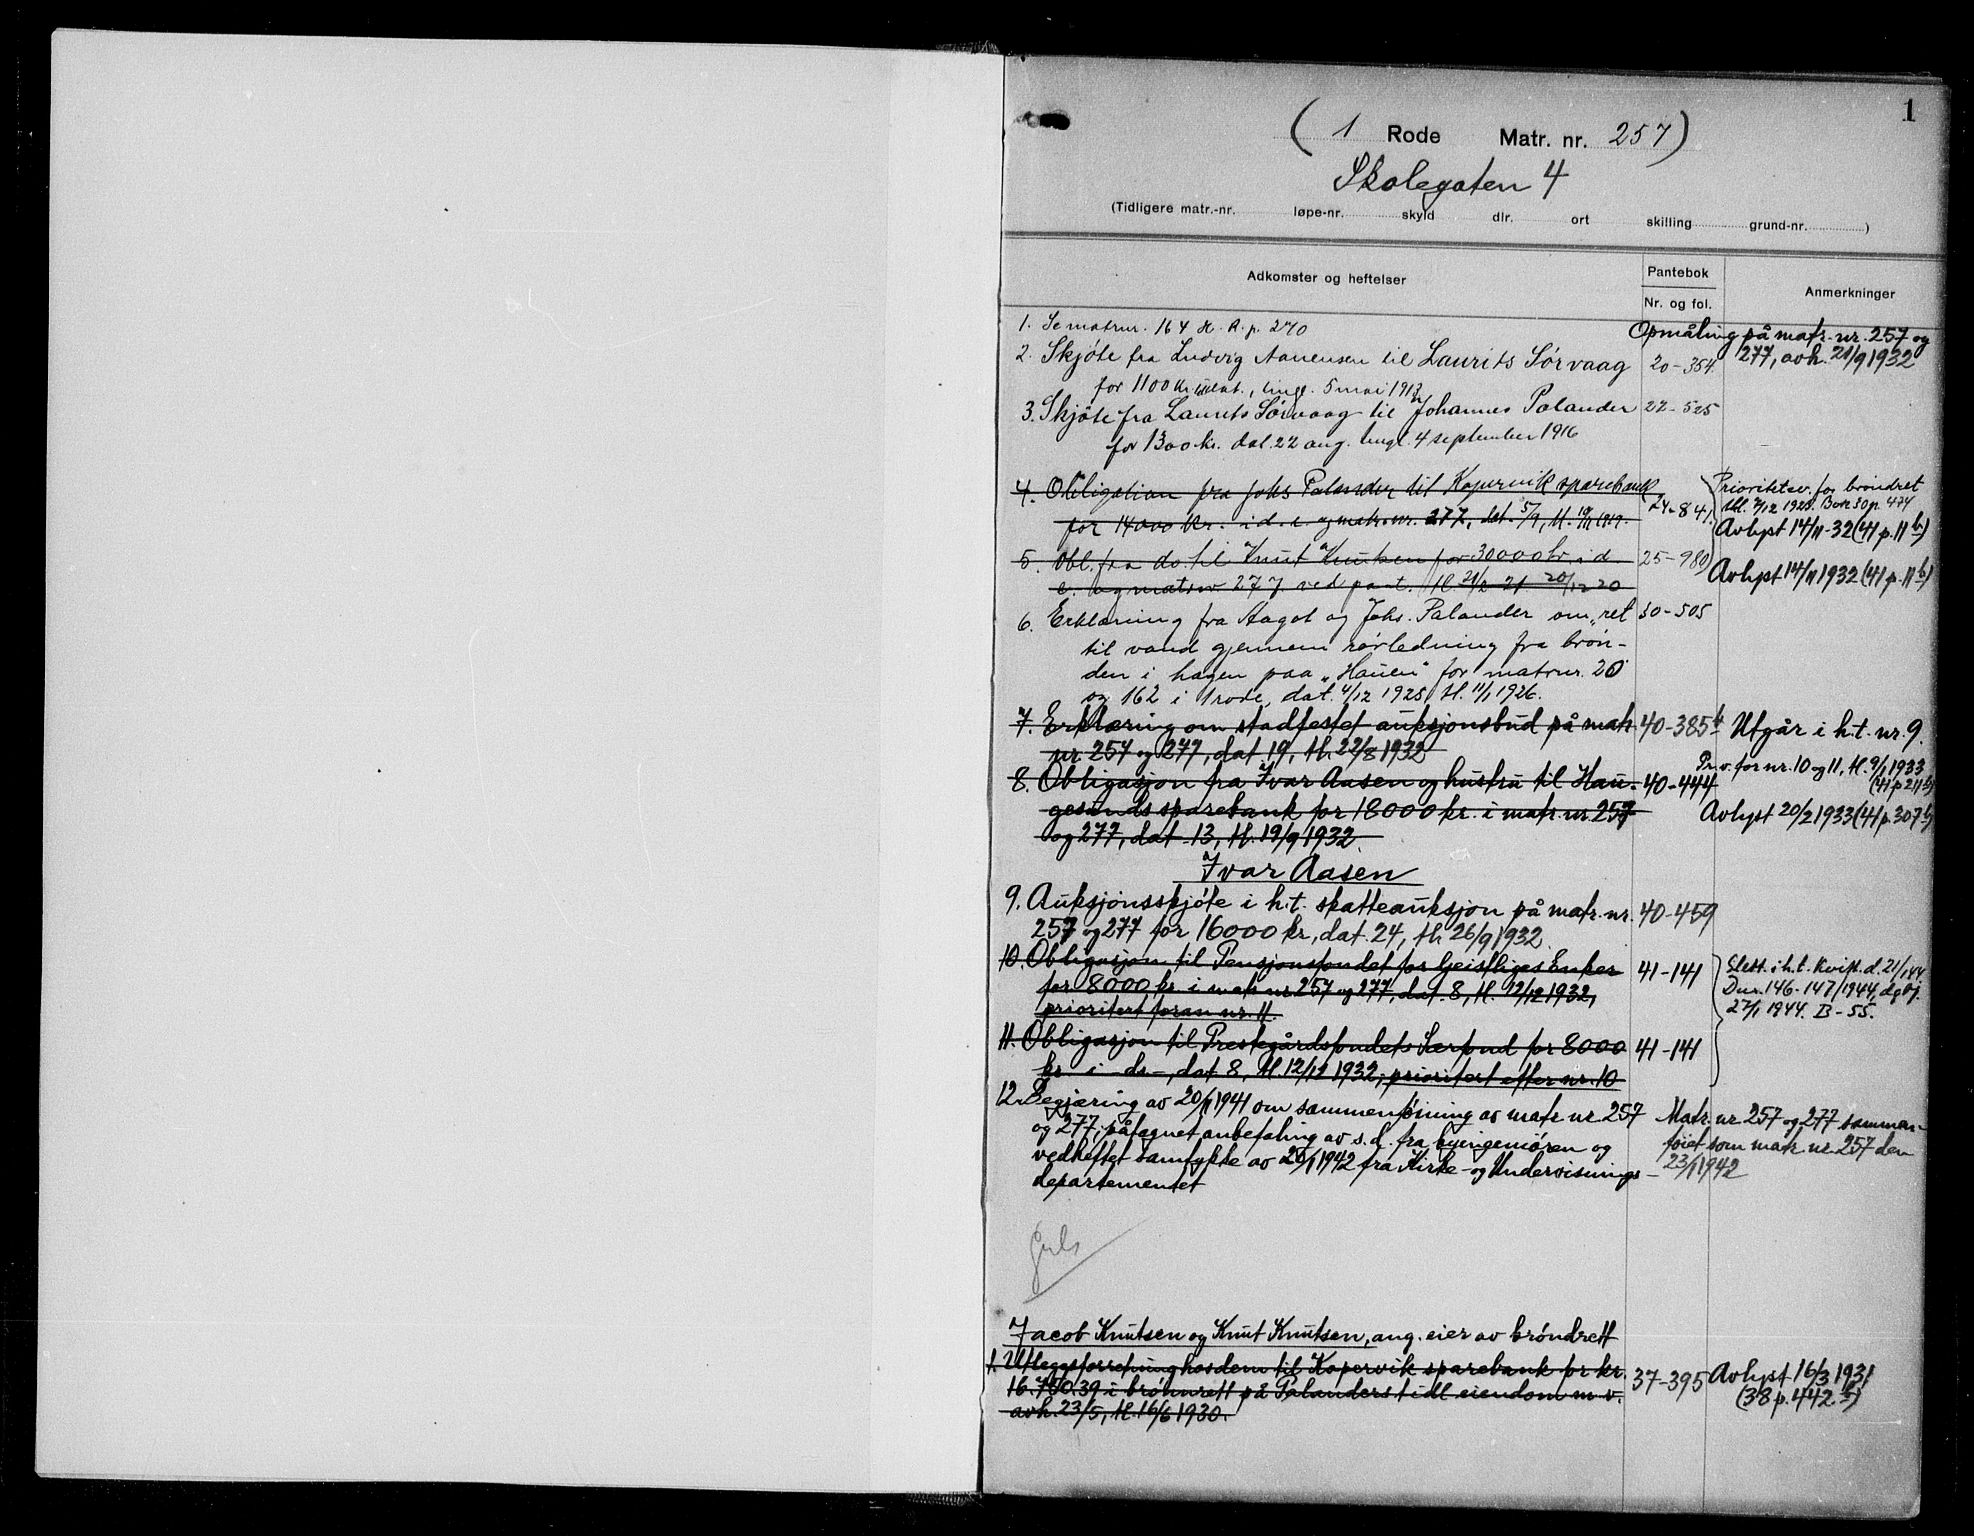 1
( 1 Rode Matr. nr. 257 )
Skolegaten 4
(Tidligere matr.-nr. løpe-nr. skyld dlr. ort skilling grund-nr. )
Adkomster og heftelser
Pantebok
Nr. og fol.
Anmerkninger
1. Se matrnr. 164 H. A. p. 270
Opmåling på matr. nr. 257 og
277, avh. 21/9 1932
2. Skjøte fra Ludvig Aanensen til Laurits Sørvaag 20-354
for 1100 kr. tingl. 5 mai 1913
3. Skjøte fra Laurits Sørvaag til Johannes Palander 22-525
for 1300 kr. dat. 22 aug. tingl. 4 september 1916
4. Obligation fra Johs Palander til Kopervik sparebank 24-841
for 14000 kr. i d. e. og matr. nr. 277, dat. 5/9, tl.
Prioritetsv. for brøndret
tl. 7/12 1925. Bok 30 p. 474
Avlyst 14/11-32 (41 p. 11 b)
5. Obl. fra do. til Knut Knutsen for 30000 kr. i d. 25-980
e. og matrnr 277. ved pant. tl. 21/2 21 20/12 20
Avlyst 14/11 1932 (41 p. 11 b)
6. Erklæring fra Aagot og Johs. Palander om „ret 30-505
til vand gjennem rørledning fra brøn-
den i hagen paa „Hauen" for matrnr. 20
og 162 i 1 rode, dat. 4/12 1925, tl. 11/1 1926.
7. Erklæring om stadfestet auksjonsbud på matr. 40-385 b Utgår i h.t. nr. 9.
nr. 257 og 277, dat. 19, tl. 22/8 1932
8. Obligasjon fra Ivar Aasen og hustru til Hau- 40-444
gesunds sparebank for 18000 kr. i matr. nr. 257
og 277, dat. 13, tl. 19/9 1932.
Pr.v. for nr. 10 og 11, tl. 9/1 1933
(41 p 211 b)
Avlyst 20/2 1933 (41 p. 307 b)
Ivar Aasen
9. Auksjonsskjøte i h.t. skatteauksjon på matr. nr. 40-459
257 og 277 for 16000 kr, dat. 24, tl. 26/9 1932.
10. Obligasjon til Pensjonsfondet for Geistliges Enker 41-141
for 8000 kr. i matr. nr. 257 og 277, dat. 8, tl. 12/12 1932,
prioritert foran nr. 11.
Slett. i h.t. kvitt. d. 21/1 44
Dnr. 146-147/1944, dgbj.
27/1 1944. B-55.
11. Obligasjon til Prestegårdsfondets Særfond for 8000 41-141
kr. i -ds-, dat. 8, tl. 12/12 1932, prioritert efter nr. 10
12. Begjæring av 20/11 1941 om sammenføining av matr. nr. 257
og 277, påtegnet anbefaling av s.d. fra byingeniøren og
vedheftet samtykke av 20/1 1942 fra Kirke- og Undervisnings-
departementet
Matr. nr. 257 og 277 sammen-
føiet som matr. nr. 257 den
23/1 1942
Jacob Knutsen og Knut Knutsen, ang. eier av brøndrett
1. Utleggsforretning hos dem til Kopervik sparebank for kr. 37-395
16.750.39 i brønnrett på Palanders tidl. eiendom m.v.
avh. 23/5, tl. 16/6 1930.
Avlyst 16/3 1931
(38 p. 442 b)